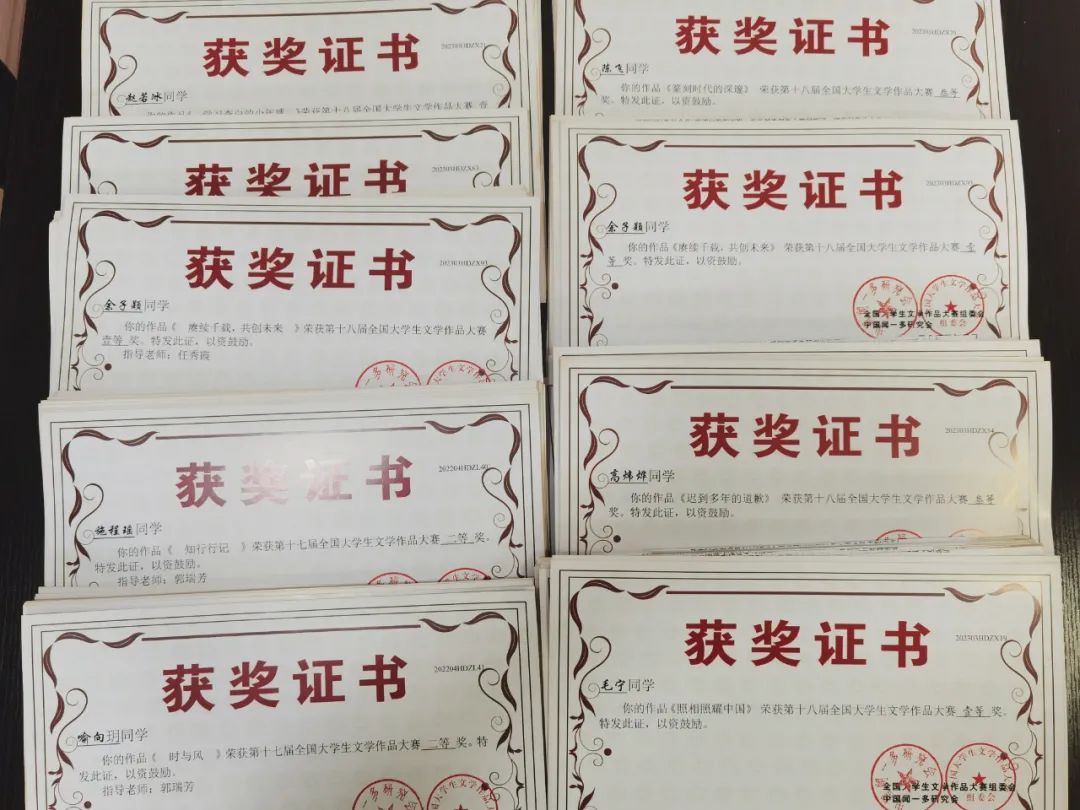 获奖证书
赵若冰同学
荣获第十八届全国大学生文学作品大赛 壹
获奖证书
获奖证书
202303HDZX93
余子颖同学
你的作品《 赓续千载,共创未来 》荣获第十八届全国大学生文学作品大赛
壹等 奖。特发此证,以资鼓励。
指导老师:任秀霞
获奖证书
202204HDZL40
施程瑶同学
你的作品《 知行行记 》荣获第十七届全国大学生文学作品大赛 二等 奖。
特发此证,以资鼓励。
指导老师:郭瑞芳
获奖证书
202204HDZL41
喻向玥同学
你的作品《 时与风 》荣获第十七届全国大学生文学作品大赛 二等 奖。特
发此证,以资鼓励。
指导老师:郭瑞芳
获奖证书
陈飞同学
你的作品《篆刻时代的深邃》 荣获第十八届全国大学生文学作品大赛 叁等
奖。特发此证,以资鼓励。
获奖证书
余子颖同学
你的作品《赓续千载,共创未来》 荣获第十八届全国大学生文学作品大赛 壹
等 奖。特发此证,以资鼓励。
全国大学生文学作品大赛组委会
中国闻一多研究会
组委会
获奖证书
202303HDZX54
高炜烨同学
你的作品《迟到多年的道歉》 荣获第十八届全国大学生文学作品大赛 叁等
奖。特发此证,以资鼓励。
获奖证书
202303HDZX19
毛宁同学
你的作品《照相照耀中国》 荣获第十八届全国大学生文学作品大赛 壹等 奖。
特发此证,以资鼓励。
全国大学生文学作品大赛组委会
中国闻一多研究会
组委会